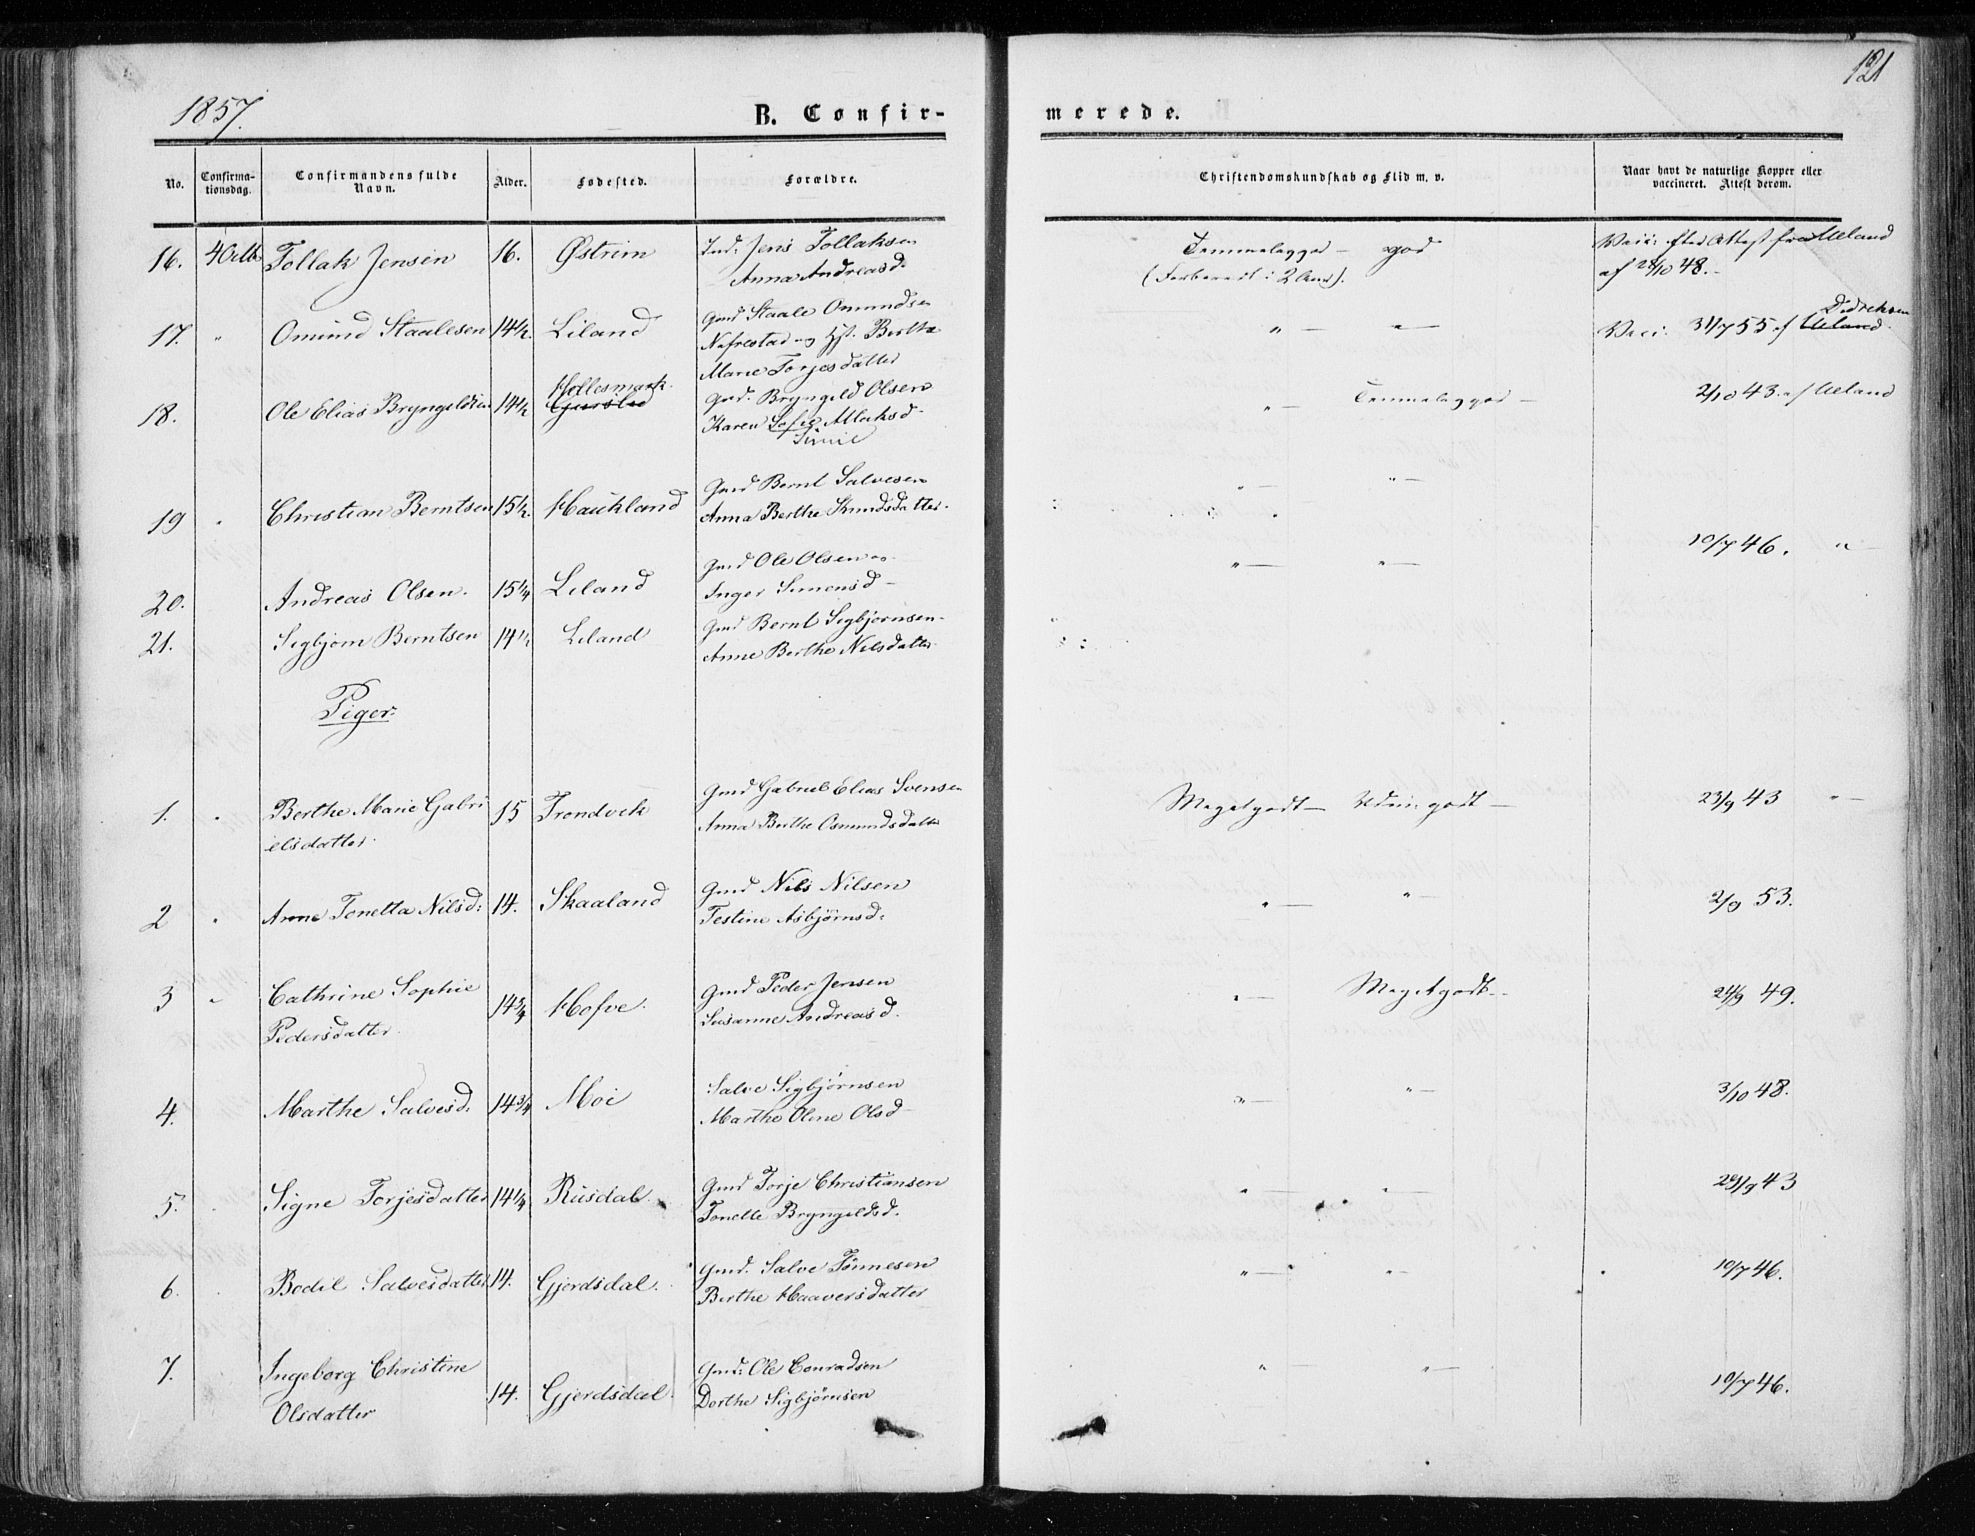 1857.
B. Confir-
merede.
121
No. Confirma-tionsdag. Confirmandens fulde Navn. Alder. Fødested. Forældre. Christendomskundskab og Flid m. v. Naar havt de naturlige Kopper eller vaccineret. Attest derom.
16. 4 Octb Tollak Jensen 16. Østrem Ind. Jens Tollaksen Temmelig god — god Vacc: efter Attest fra Ueland
Anna Andreasd. (Forberedt i 2 Aar). af 28/10 48.
17. " Omund Staalesen 14½. Liland Gmd Staale Omundsen " — " — Vacc: 31/7 55 af Ueland Didreksen
Nefrestad og Hst. Berthe
Marie Torjesdatter
18. Ole Elias Bryngeldsen 14½ Gursled Hollesmark Gmd. Bryngeld Olsen " — Temmelig god — 2/10 43. af Ueland
Karen Sofie Allaksd.
Sirnie
19 " Christian Berntsen 15½. Haukland Gmd Bernt Salvesen " — " —
Anna Berthe Knudsdatter.
20. Andreas Olsen. 15¼ Leland Gmd Ole Olsen og " — " — 10/7 46. " —
Inger Simonsd —
21. Sigbjørn Berntsen 14½ Leland Gmd Bernt Sigbjørnsen
Anne Berthe Nilsdatter
Piger:
1. " Berthe Marie Gabri 15 Trondvik Gmd Gabriel Elias Svensen Meget godt — Udm: godt — 23/9 43 " —
elsdatter. Anna Berthe Osmundsdatter
2 " Anne Tonetta Nilsd: 14. Skaaland Gmd Nils Nilsen " — " — 2/9 53.
Testine Asbjørnsd:
3 " Cathrine Sophie 14¾ Hofve. Gmd Peder Jensen " — Meget godt — 24/9 49.
Pedersdatter. Susanne Andreasd.
4. Marthe Salvesd: 14¾ Moi Salve Sigbjørnsen " — " — 3/10 48.
Marthe Oline Olsd —
5. Signe Torjesdatter 14¼ Rusdal Gmd Torje Christiansen " — " — 23/9 43
Tonette Bryngeldsd.
6. Bodil Salvesdatter 14. Gjerdsdal. Gmd. Salve Tønnesen " — " — 10/7 46.
Berthe Haaversdatter
7. Ingeborg Christine 14. Gjerdsdal. Gmd: Ole Conradsen " " — 10/7 46.
Olsdatter Dorthe Sigbjørnsen